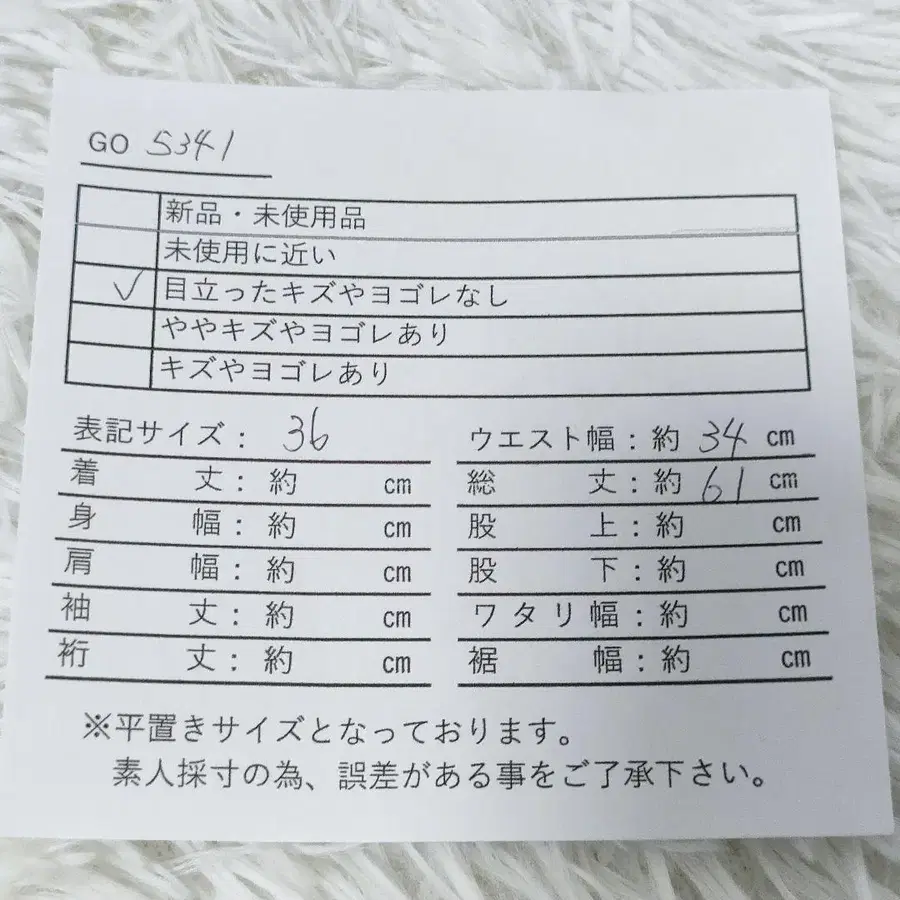 GO 5341
新品・未使用品
未使用に近い
✓ 目立ったキズやヨゴレなし
ややキズやヨゴレあり
キズやヨゴレあり
表記サイズ: 36
着丈: 約 cm
身幅: 約 cm
肩幅: 約 cm
袖丈: 約 cm
裄丈: 約 cm
ウエスト幅: 約 34 cm
総丈: 約 61 cm
股上: 約 cm
股下: 約 cm
ワタリ幅: 約 cm
裾幅: 約 cm
※平置きサイズとなっております。
素人採寸の為、誤差がある事をご了承下さい。